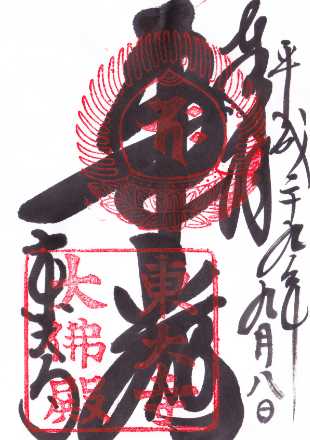 奉拝
平成二十九年九月八日
華厳
東大寺
東大寺
大佛殿